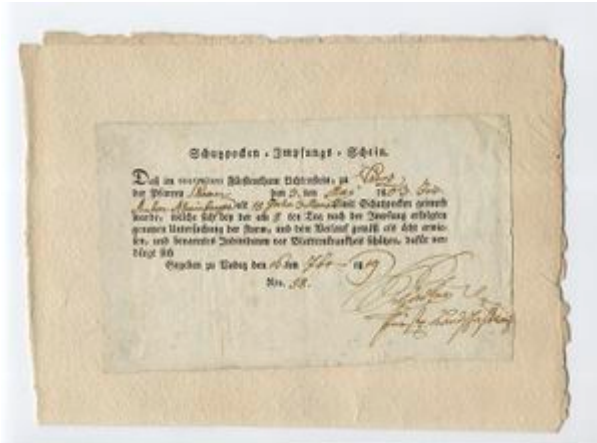 Schutzpocken-Impfungs-Schein.
Daß im souverainen Fürstenthum Lichtenstein, zu
der Pfarren den 3. ten May 18
alt 10 Jahr 3 Monat mit Schutzpocken geimpft
wurde, welche sich bey der am 8 ten Tag nach der Impfung erfolgten
genauen Untersuchung der Form, und dem Verlauf gemäß als ächt erwie-
sen, und benanntes Individuum vor Blatternkrankheit schützen, dafür ver-
bürgt sich
Gegeben zu Vaduz den 16 ten 7br 1819
Nro. 58.